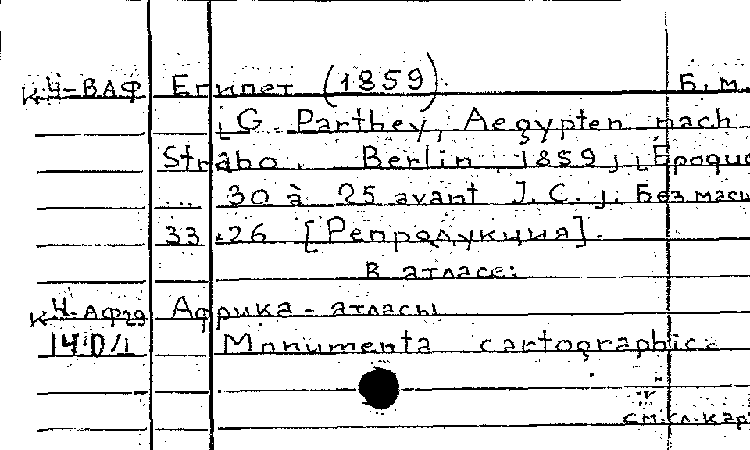 к.Ч-ВАФ Египет (1859). Б.м.
[G. Parthey, Aegypten nach
Strabo. Berlin, 1859], [Epoque
... 30 à 25 avant J. C.]. Без
33×26 [Репродукция].
В атласе:
к.Ч-Аф29 Африка - атласы
14.D/1 Monumenta cartographica
см.гл.кар